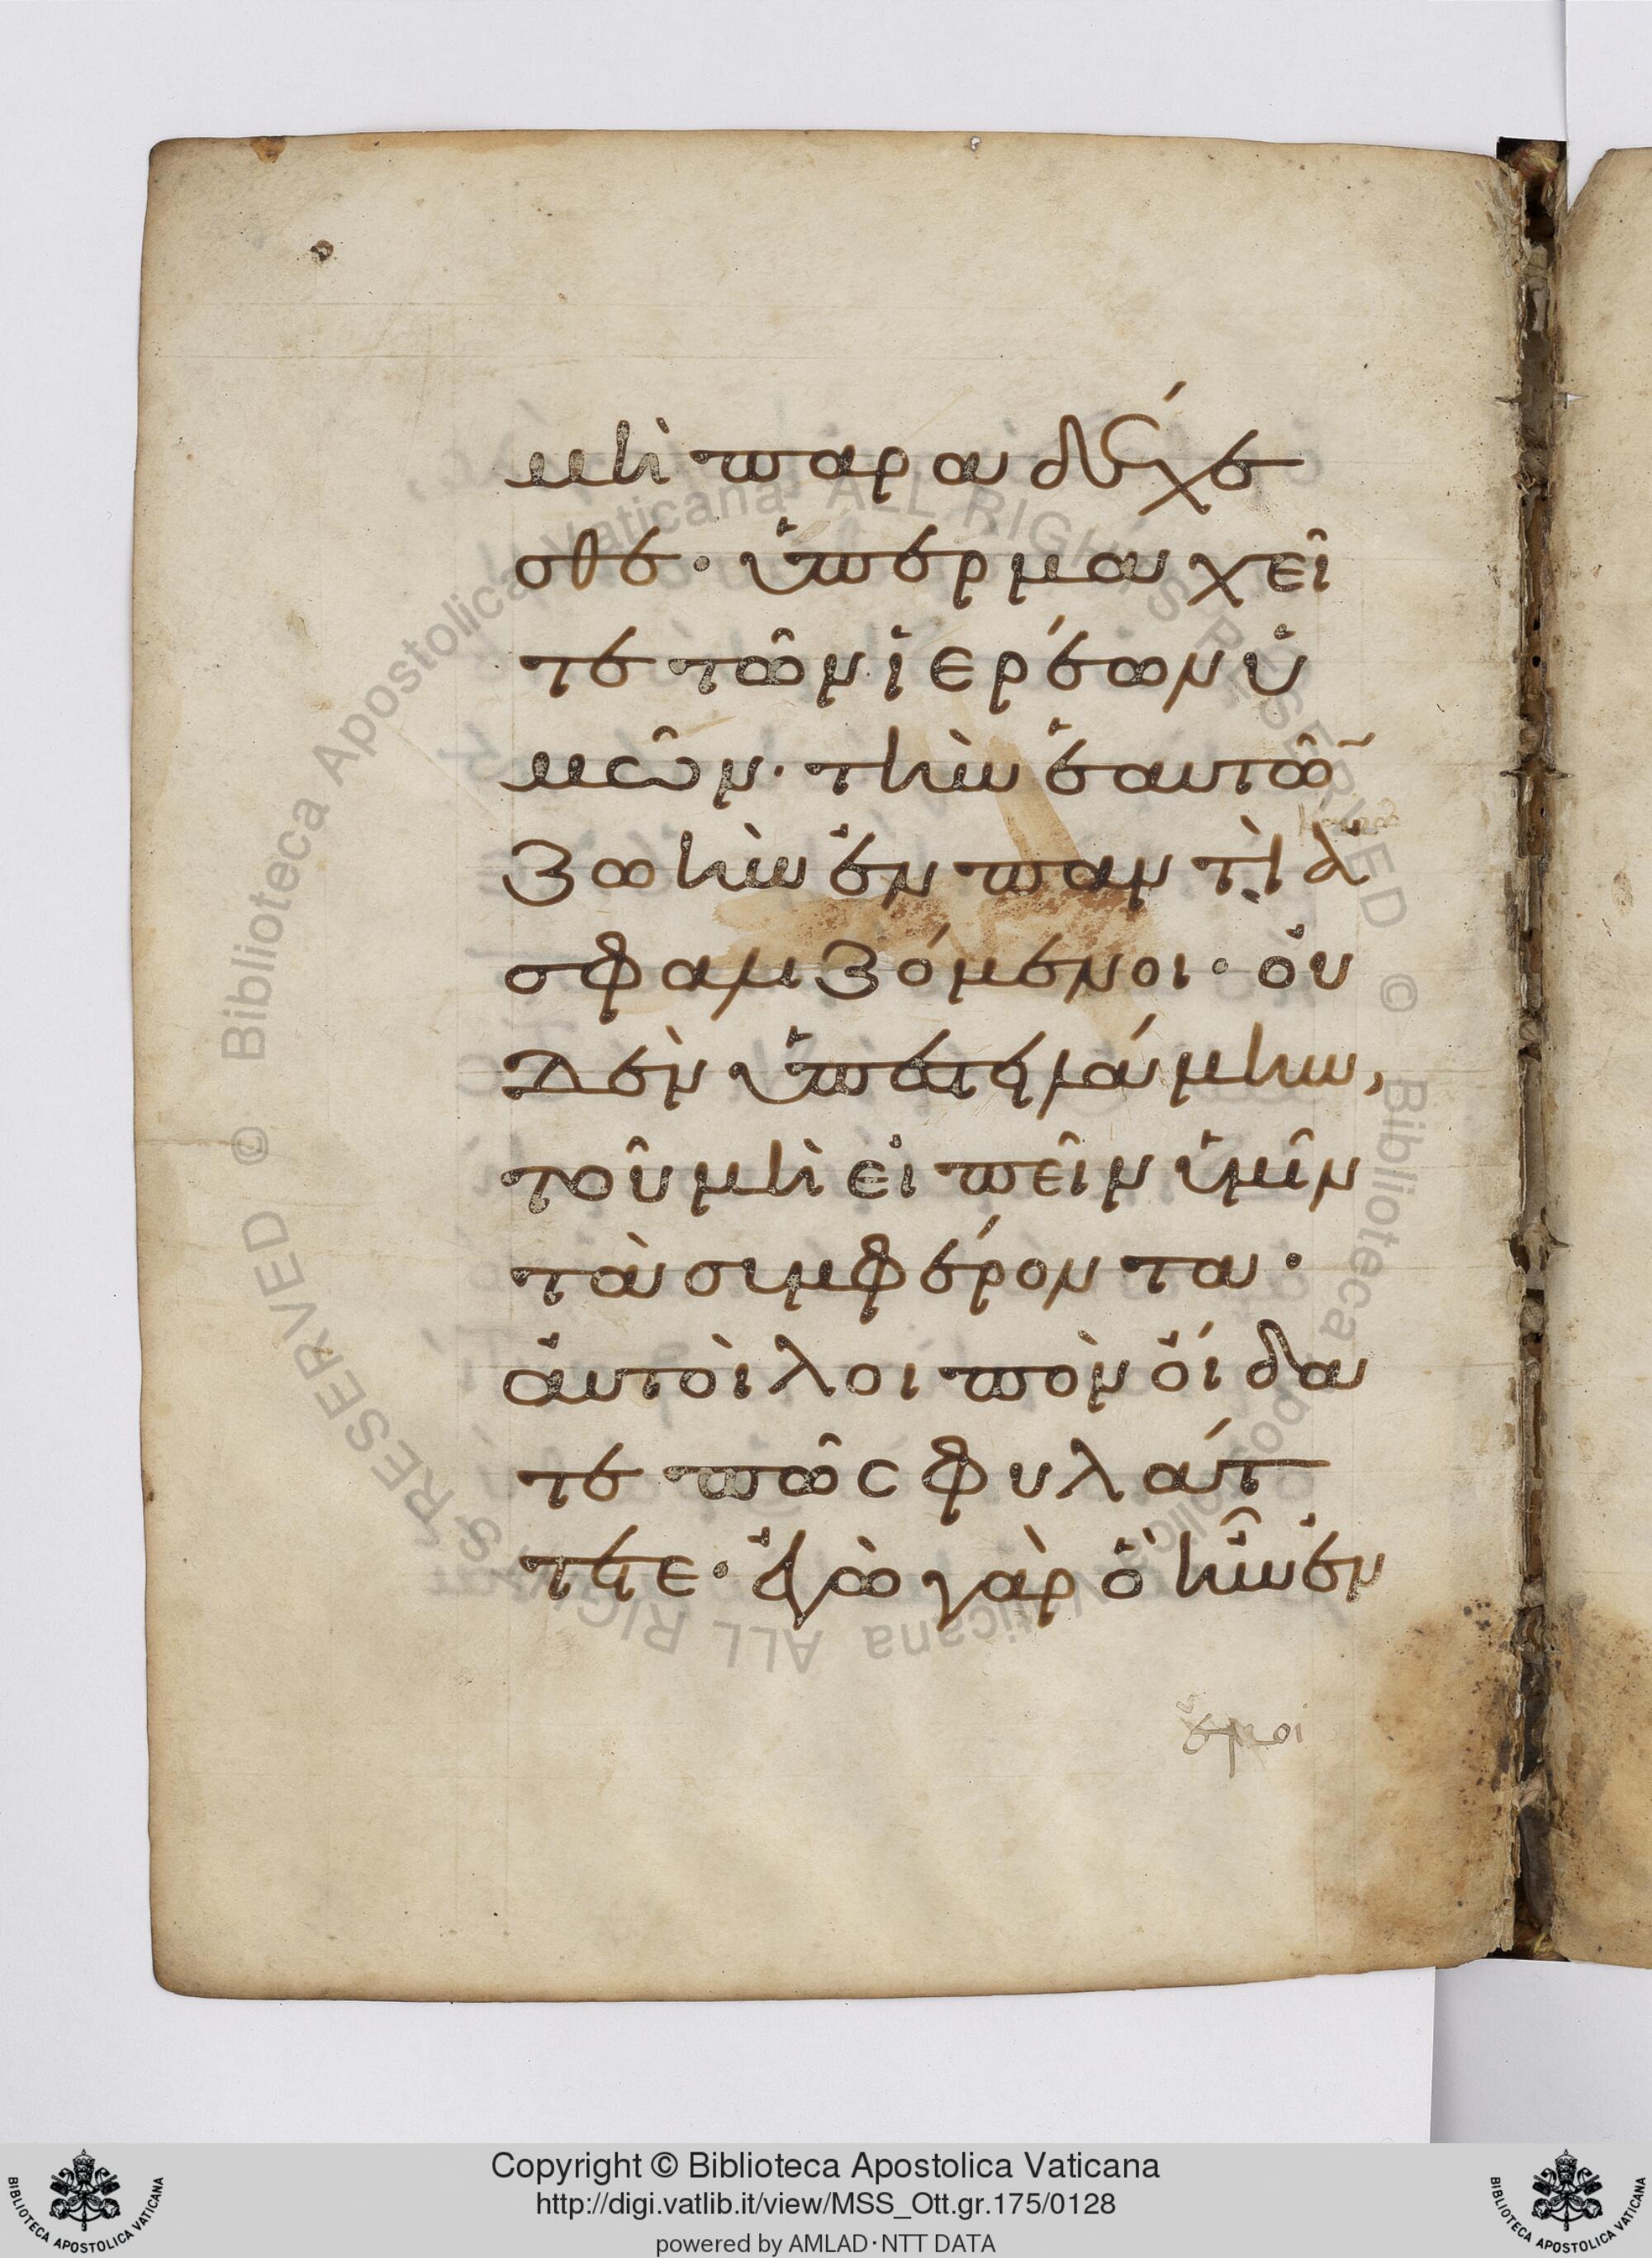 μὴ παραδέχε
σθε· ὑπερμαχεῖ
τε τῶν ἱερέων ὑ
μῶν· τὴν ἑαυτῶ͂
ζωὴν ἐν παντὶ ἀ
σφαλιζόμενοι· οὐ
δὲν ὑπεστειλάμην,
τοῦ μὴ εἰπεῖν ὑμῖν
τὰ συμφέροντα·
αὐτοὶ λοιπὸν οἴδα
τε πῶς φυλάτ
τετε· ἐγὼ γὰρ ὃ ἦν ἐν
ἐμοὶ
Copyright © Biblioteca Apostolica Vaticana
http://digi.vatlib.it/view/MSS_Ott.gr.175/0128
powered by AMLAD·NTT DATA
BIBLIOTECA APOSTOLICA VATICANA
BIBLIOTECA APOSTOLICA VATICANA
© Biblioteca Apostolica Vaticana ALL RIGHTS RESERVED © Biblioteca Apostolica Vaticana ALL RIGHTS RESERVED